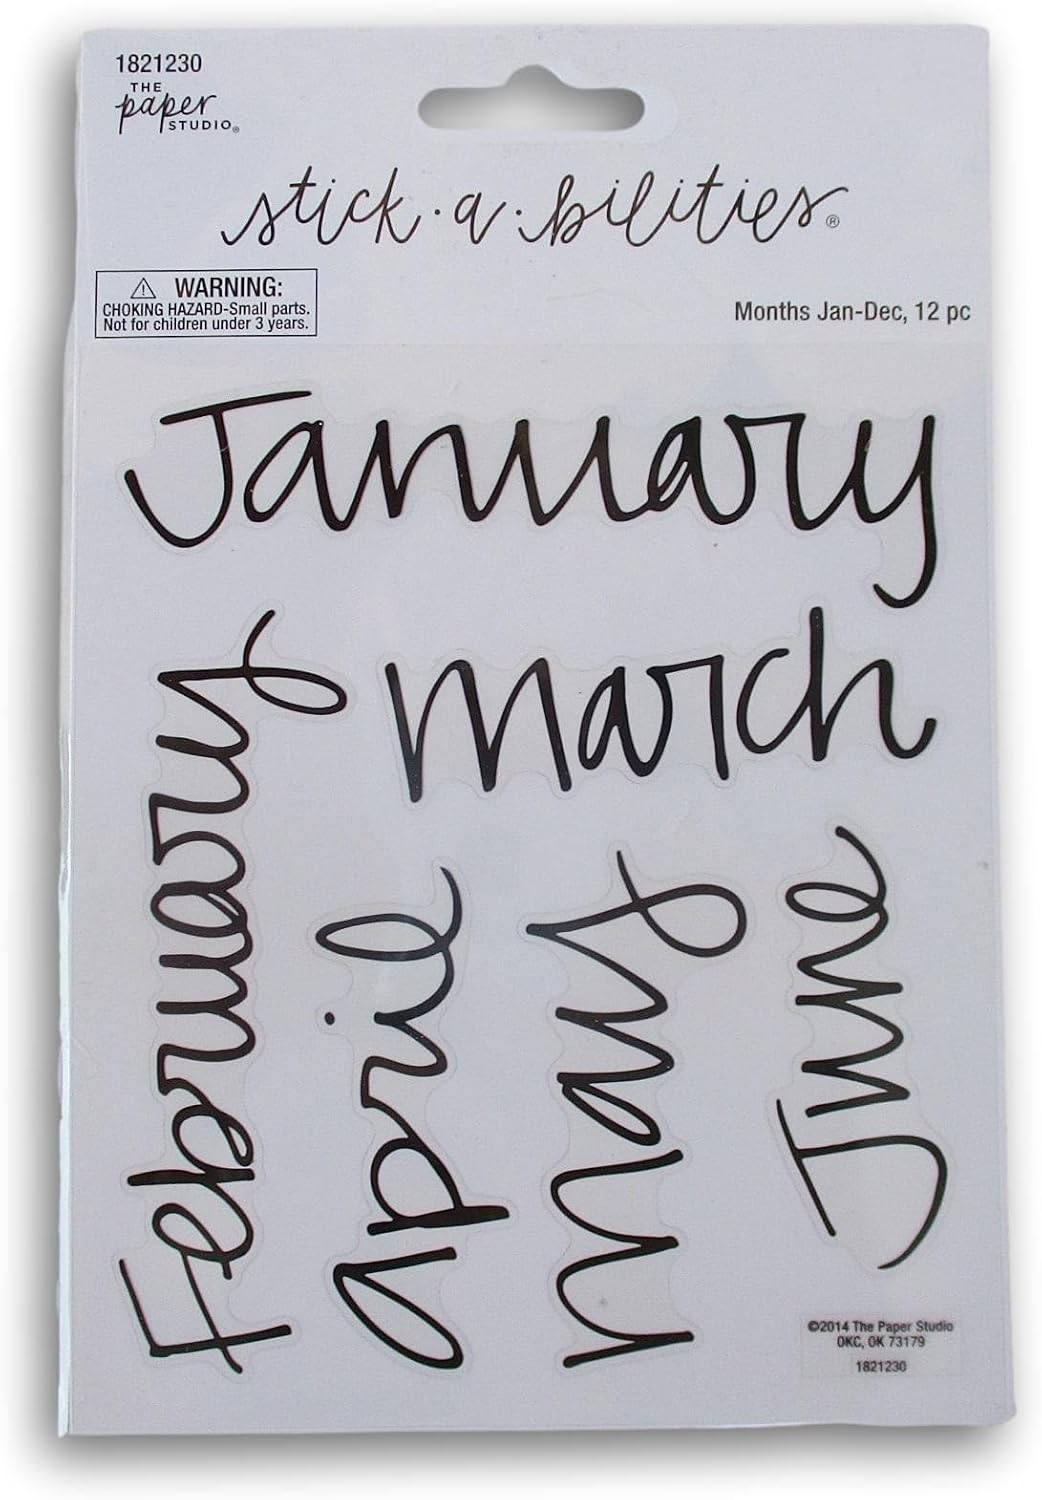 1821230
THE
paper
STUDIO®
stick·a·bilities®
⚠ WARNING:
CHOKING HAZARD-Small parts.
Not for children under 3 years.
Months Jan-Dec, 12 pc
January
February
march
april
may
June
©2014 The Paper Studio
OKC, OK 73179
1821230